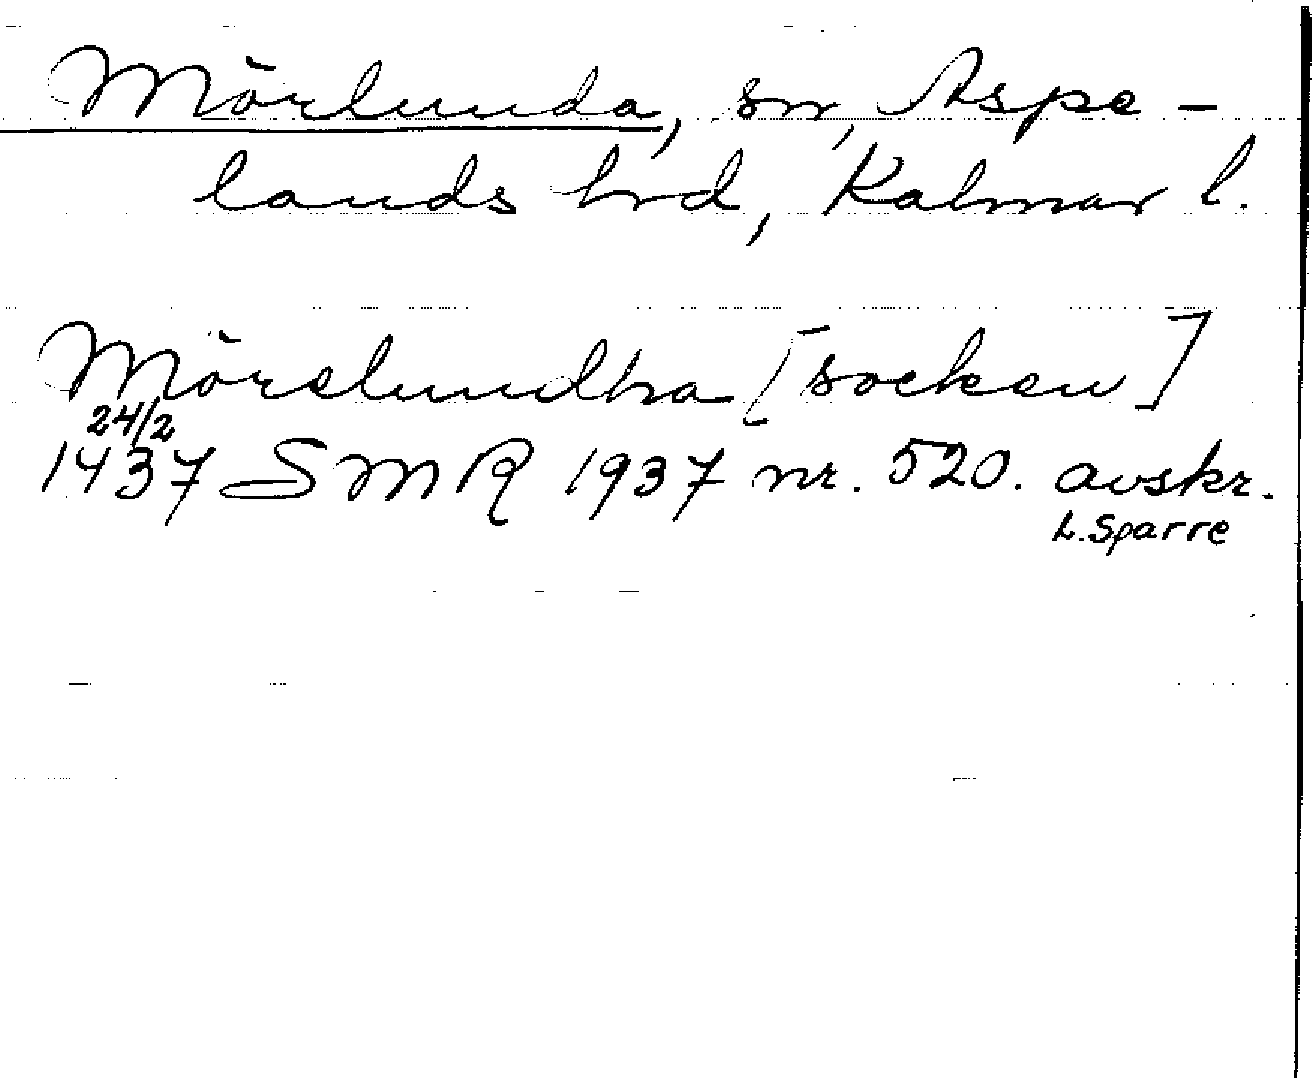 Mörlunda, sn, Aspe-
lands hrd, Kalmar l.
Mörelundha [socken]
24/2
1437 SMR 1937 nr. 520. avskr.
L. Sparre